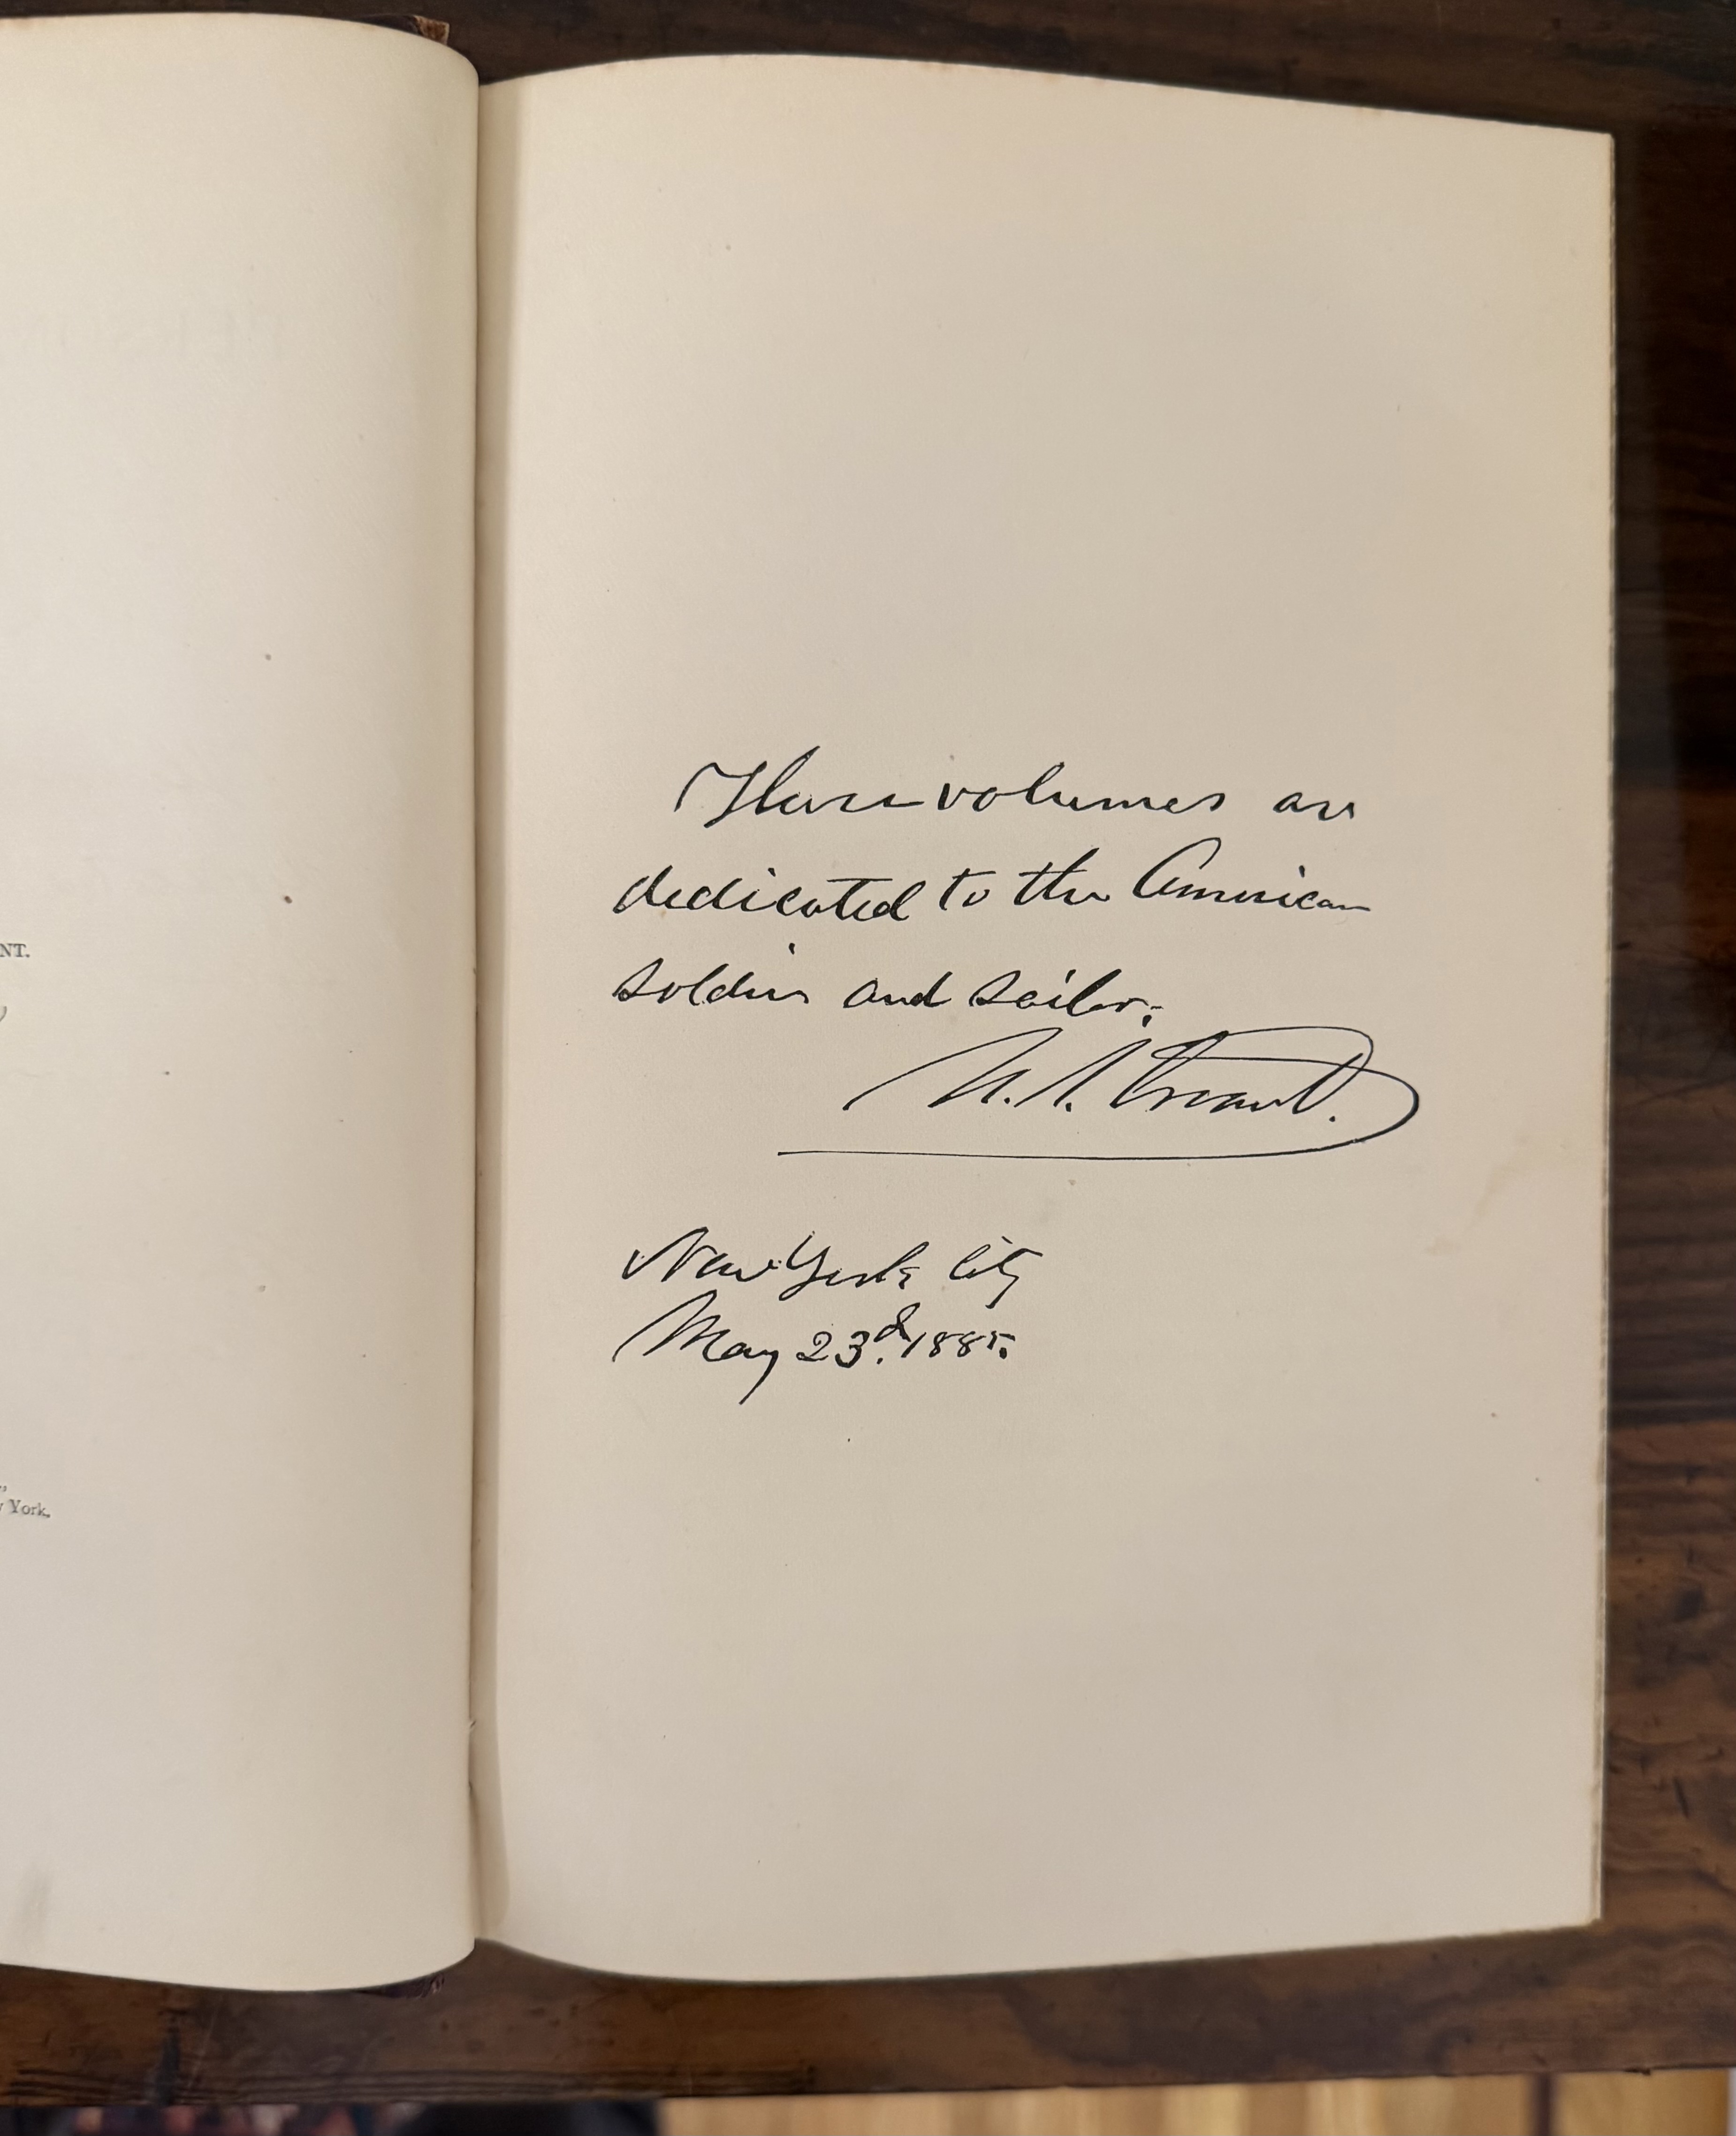 PERSON
NT.
York.
These volumes are
dedicated to the American
soldier and sailor.
U. S. Grant.
New York City
May 23d. 1885.